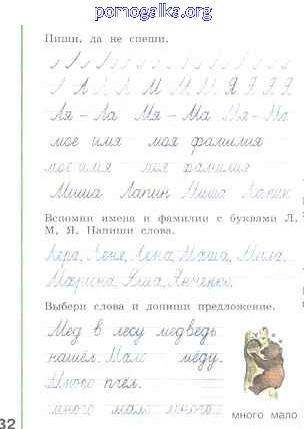 pomogalka.org
Пиши, да не спеши.
Л Л Л М М М Я Я Я Я
Ля - Ла Мя - Ма Мя - Ма
мое имя моя фамилия
мое имя моя фамилия
Миша Лапин Миша Лапин
Вспомни имена и фамилии с буквами Л,
М, Я. Напиши слова.
Лера, Лена, Маша, Мила,
Марина, Яша, Янченко.
Выбери слова и допиши предложение.
Мед в лесу медведь
нашёл. Мало мёду.
Много пчёл.
много мало много
много мало
32